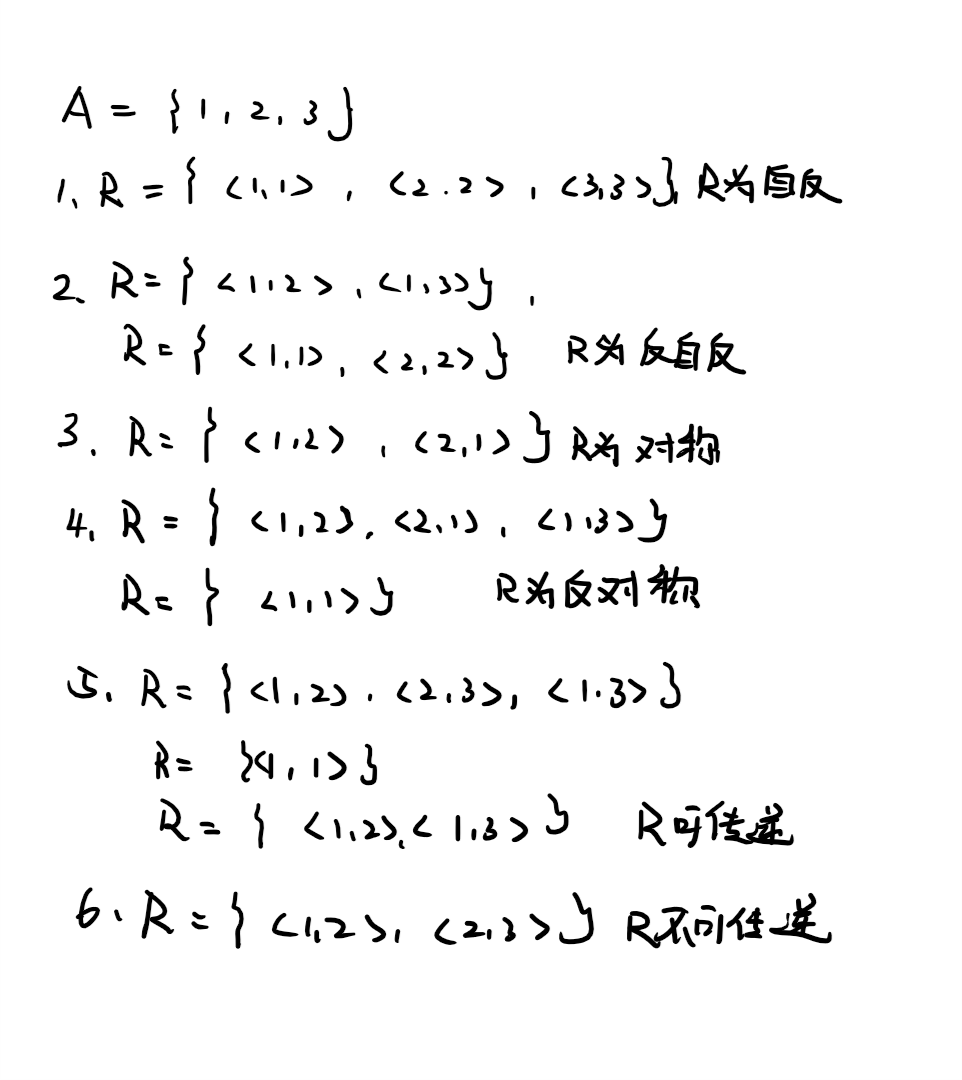 A = {1, 2, 3}
1、R = {<1,1>, <2.2>, <3,3>}, R为自反
2、R = {<1,2>, <1,3>},
R = {<1,1>, <2,2>} R为反自反
3. R = {<1,2>, <2,1>} R为对称
4. R = {<1,2>, <2,1>, <1,3>}
R = {<1,1>} R为反对称
5. R = {<1,2>, <2,3>, <1.3>}
R = {<1,1>}
R = {<1,2>,<1,3>} R可传递
6. R = {<1,2>, <2,3>} R不可传递